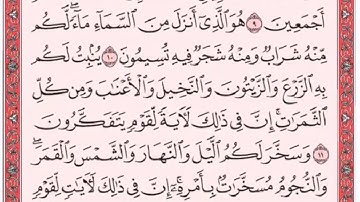 أَجْمَعِينَ ٩ هُوَ ٱلَّذِىٓ أَنزَلَ مِنَ ٱلسَّمَآءِ مَآءً ۖ لَّكُم
مِّنْهُ شَرَابٌ وَمِنْهُ شَجَرٌ فِيهِ تُسِيمُونَ ١٠ يُنۢبِتُ لَكُم
بِهِ ٱلزَّرْعَ وَٱلزَّيْتُونَ وَٱلنَّخِيلَ وَٱلْأَعْنَٰبَ وَمِن كُلِّ
ٱلثَّمَرَٰتِ ۗ إِنَّ فِى ذَٰلِكَ لَءَايَةً لِّقَوْمٍ يَتَفَكَّرُونَ
١١ وَسَخَّرَ لَكُمُ ٱلَّيْلَ وَٱلنَّهَارَ وَٱلشَّمْسَ وَٱلْقَمَرَ ۖ
وَٱلنُّجُومُ مُسَخَّرَٰتٌۢ بِأَمْرِهِۦٓ ۗ إِنَّ فِى ذَٰلِكَ لَءَايَٰتٍ لِّقَوْمٍ